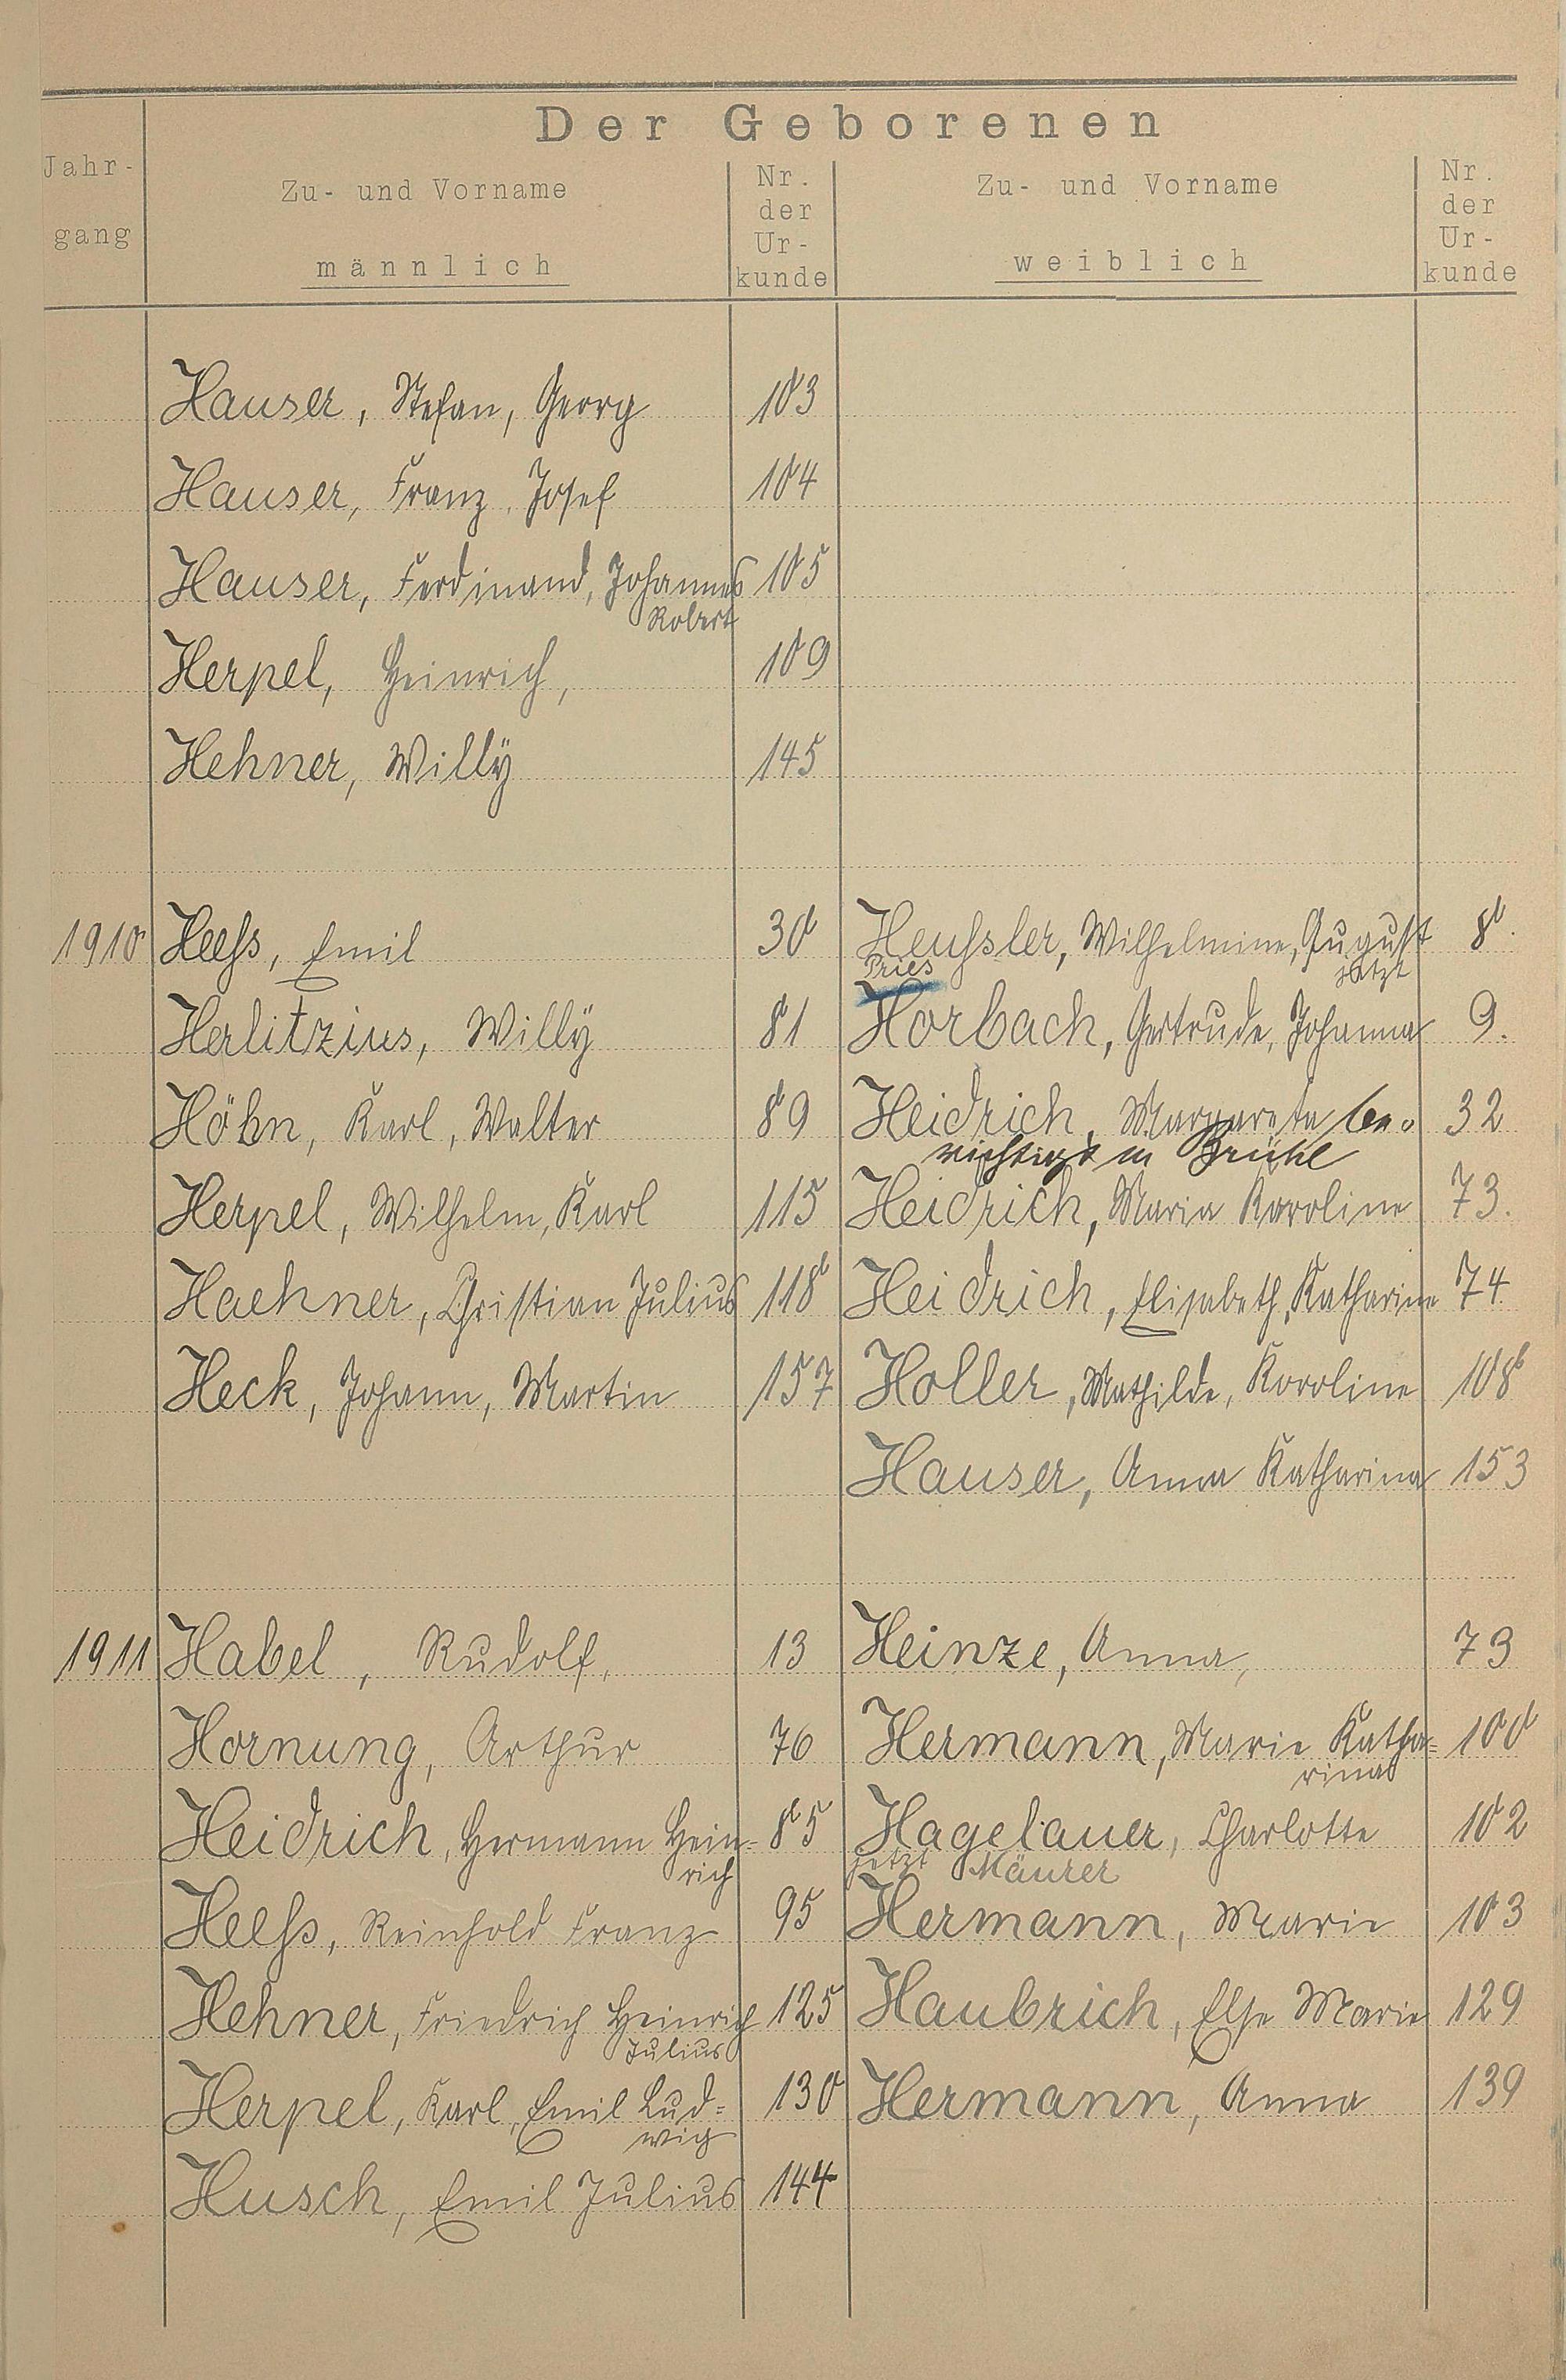 Der Geborenen
Jahr-
gang
Zu- und Vorname
männlich
Nr.
der
Ur-
kunde
Zu- und Vorname
weiblich
Nr.
der
Ur-
kunde
Hauser, Stefan, Georg 103
Hauser, Franz, Josef 104
Hauser, Ferdinand, Johannes 105
Robert
Herpel, Heinrich, 109
Hehner, Willÿ 145
1910 Heeß, Emil 30 Heußler, Wilhelmine, August 8.
Pries jetzt
Herlitzius, Willÿ 81 Horbach, Gertrude, Johanna 9.
Höhn, Karl, Walter 89 Heidrich, Margareta be- 32
richtigt in Brühl
Herpel, Wilhelm, Karl 115 Heidrich, Maria Karoline 73.
Haehner, Christian Julius 118 Heidrich, Elisabeth, Katharine 74
Heck, Johann, Martin 157 Holler, Mathilde, Karoline 108
Hauser, Anna Katharina 153
1911 Habel, Rudolf, 13 Heinze, Anna, 79
Hornung, Arthur 76 Hermann, Marie Katha= 100
rina
Heidrich, Hermann Hein- 85 Hagelauer, Charlotte 102
rich jetzt Mäurer
Heeß, Reinhold Franz 95 Hermann, Marie 103
Hehner, Friedrich Heinrich 125 Haubrich, Else Marie 129
Julius
Herpel, Karl, Emil Lud= 130 Hermann, Anna 139
wig
Husch, Emil Julius 144